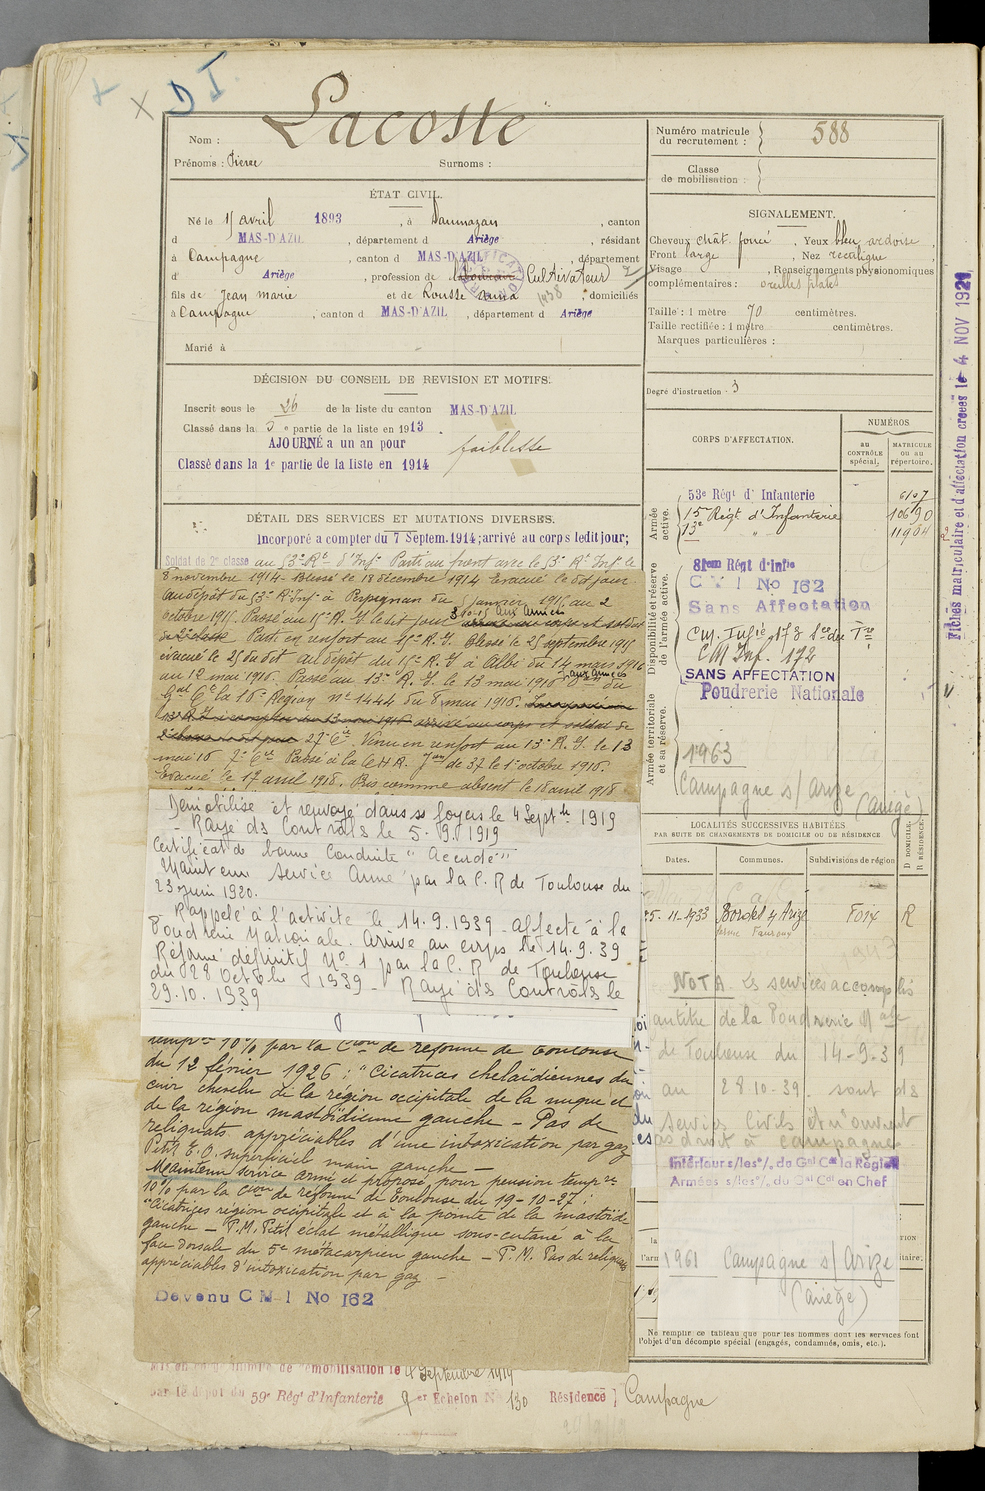 D I.
Lacoste
Nom :
Prénoms : Pierre Surnoms :
Numéro matricule du recrutement : 588
Classe de mobilisation :
ÉTAT CIVIL.
Né le 15 avril 1893, à Daumazan, canton
d MAS-D'AZIL, département d Ariège, résidant
à Campagne, canton d MAS-D'AZIL, département
d' Ariège, profession de Cultivateur
fils de Jean marie et de Rousse domiciliés
à Campagne, canton d MAS-D'AZIL, département d Ariège
Marié à
SIGNALEMENT.
Cheveux chât. foncé. Yeux bleu ardoise,
Front large, Nez rectiligne,
Visage, Renseignements physionomiques
complémentaires : oreilles plates
Taille : 1 mètre 70 centimètres.
Taille rectifiée : 1 mètre centimètres.
Marques particulières :
Degré d'instruction : 3
DÉCISION DU CONSEIL DE REVISION ET MOTIFS.
Inscrit sous le n° 26 de la liste du canton MAS-D'AZIL
Classé dans la 5e partie de la liste en 1913.
AJOURNÉ a un an pour faiblesse
Classé dans la 1e partie de la liste en 1914
DÉTAIL DES SERVICES ET MUTATIONS DIVERSES.
Incorporé a compter du 7 Septem. 1914; arrivé au corps ledit jour;
Soldat de 2e classe au 53e Rt d'Infie Parti au front avec le 53e Rt Infie le
8 novembre 1914 - Blessé le 18 décembre 1914 Evacué le dit jour
au dépôt du 53e R. Inf. à Perpignan du 5 janvier 1915 au 2
octobre 1915. Passé au 15e R. I. le dit jour 3-10-15 aux Armées
de 2e classe Parti en renfort au 15e R. I. Blessé le 25 septembre 1915
évacué le 25 du dit au dépôt du 15e R. I à Albi du 14 mars 1916
au 12 mai 1916. Passé au 13e R. I. le 13 mai 1916 aux Armées
Gal Ct la 16e Région n° 1444 du 8 mai 1916.
27e Cie. Venu en renfort au 13e R. I. le 13
mai 16 7e Cie Passé à la C H R. de 37 le 1er octobre 1916.
Evacué le 17 avril 1918. Pris comme absent le 18 avril 1918
Démobilisé et renvoyé dans ses foyers le 4 Septbre 1919
- Rayé ds Contrôls le 5.9.1919
Certificat de bonne Conduite "Accordé"
Maint em service Armé par la C. R de Toulouse du
23 juin 1920.
Rappelé à l'activité le 14.9.1939 - affecté à la
Poudrerie Nationale. Arrivé au corps le 14.9.39
Réformé définitif N° 1 par la C. R de Toulouse
du 28 Octobre 1939 - Rayé ds Contrôls le
29.10.1939
tempre 10% par la Cion de réforme de Toulouse
du 12 février 1926 : "Cicatrices chéloïdiennes du
cuir chevelu de la région occipitale de la nuque et
de la région mastoïdienne gauche - Pas de
reliquats appréciables d'une intoxication par gaz
Petit E. O. superficiel main gauche -
Maintenu service armé et proposé pour pension tempre
10% par la Cion de réforme de Toulouse du 19-10-27 :
"Cicatrices région occipitale et à la pointe de la mastoïde
gauche - P.M. Petit éclat métallique sous-cutané à la
face dorsale du 5e métacarpien gauche - P. M. Pas de reliquats
appréciables d'intoxication par gaz -
Devenu C M I No 162
Mis en congé illimité de démobilisation le 4 Septembre 1919
par le dépôt du 59e Régt d'Infanterie 9 er Echelon N° 130 Résidence } Campagne
CORPS D'AFFECTATION.
NUMÉROS
au CONTRÔLE spécial.
MATRICULE ou au répertoire.
Armée active.
53e Régt d' Infanterie 6107
15e Régt d'Infanterie 10690
13e " 11904
Disponibilité et réserve de l'armée active.
81eme Régt d'Infie
C M I No 162
Sans Affectation
C M Inf. 172
SANS AFFECTATION
Poudrerie Nationale
Armée territoriale et sa réserve.
1963
Campagne s/ Arize
(Ariège)
LOCALITÉS SUCCESSIVES HABITÉES
PAR SUITE DE CHANGEMENTS DE DOMICILE OU DE RÉSIDENCE
Dates. Communes. Subdivisions de région D DOMICILE. R RÉSIDENCE.
25-11-1933 Bordes s/ Arize Foix R
NOTA. Les services accomplis
au titre de la Poudrerie Nale
de Toulouse du 14-9-39
au 28-10-39. sont ds
Services Civils et n'ouvrent
pas droit à campagne.
Intérieur s/les o/. du Gal Ct la Région
Armées s/les o/. du Gal Ct en Chef
1961 Campagne s/ Arize
(Ariège)
Ne remplir ce tableau que pour les hommes dont les services font
l'objet d'un décompte spécial (engagés, condamnés, omis, etc.).
Fiches matriculaire et d'affectation créées le 4 NOV 1921